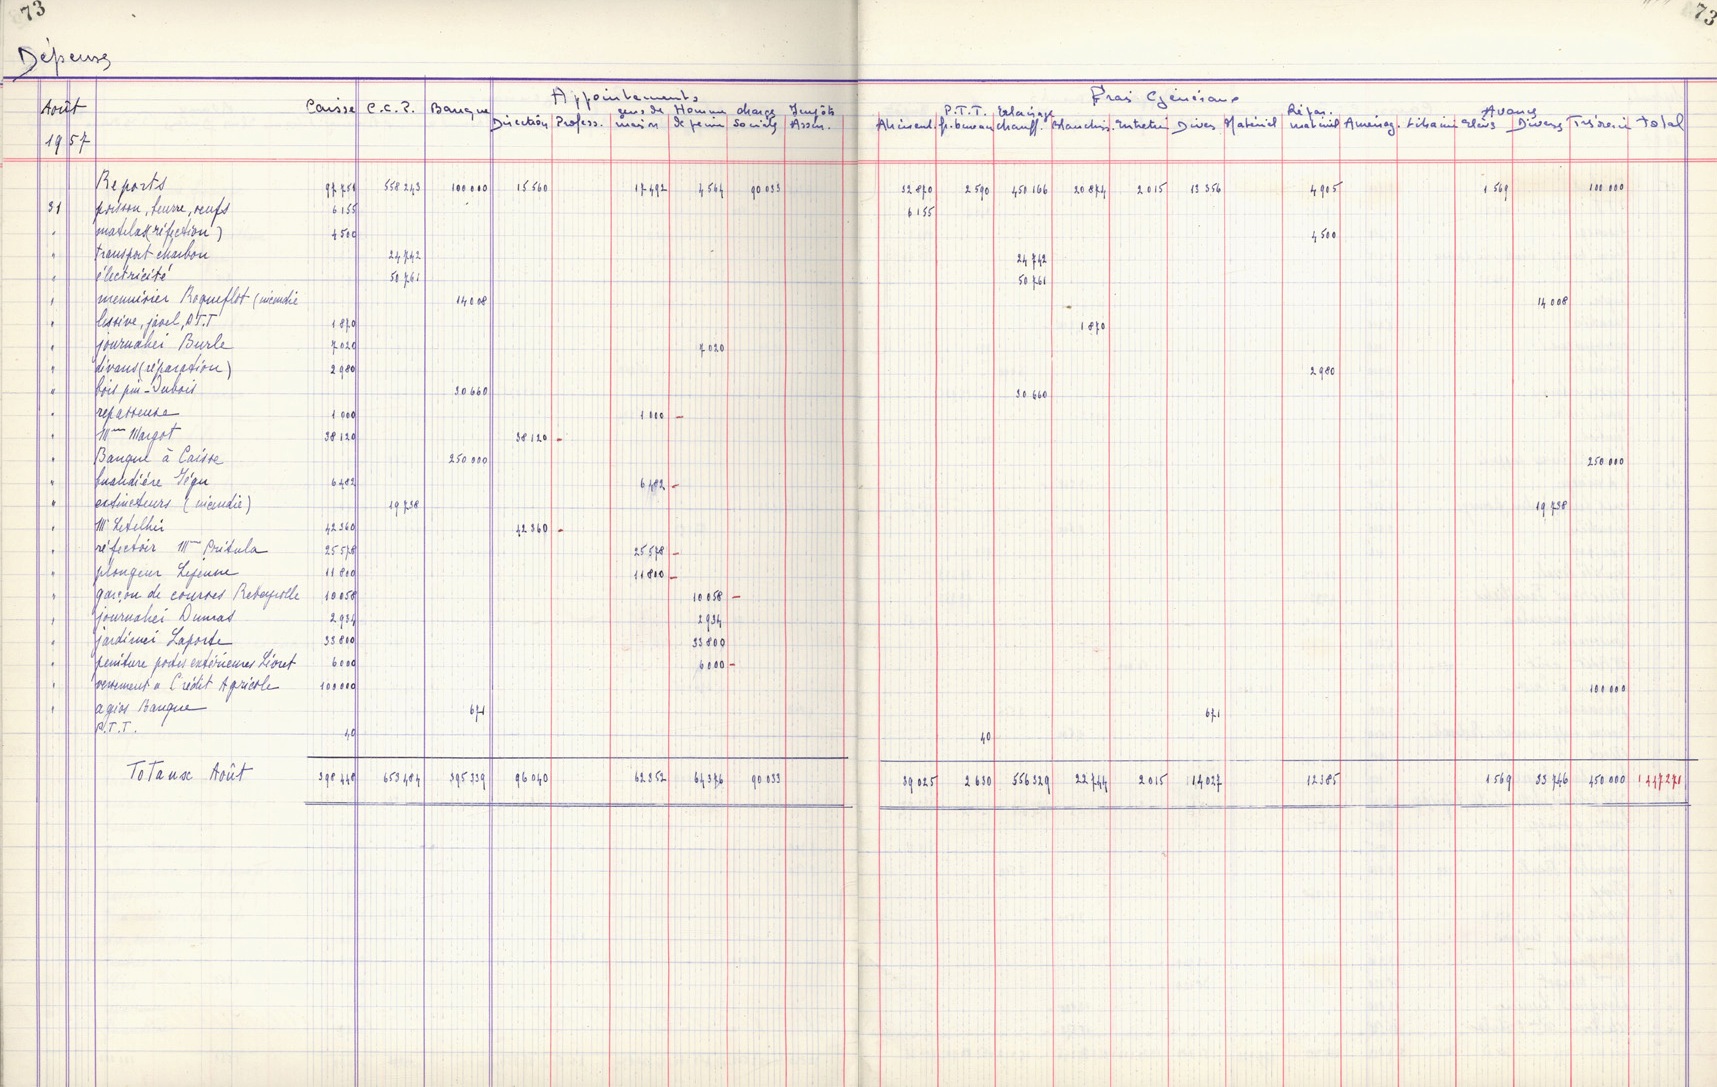 73
73
Dépenses
Août
1957
Caisse C.C.P. Banque Appointements Frais Généraux
Direction Profess. gens de maison Homme de peine charge Sociale Impôts Assur.
Aliment. P.T.T. fr. bureau Eclairage chauff. Blanchis. Entretien Divers Matériel Répar. matériel Aménag. Librairie Avances Elèves Divers Trésorerie Total
Reports 97751 558243 100000 15560 17492 4564 90033 32870 2590 450166 20874 2015 13356 4905 1569 100000
31 poisson, beurre, oeufs 6155 6155
" matelas (réfection) 4500 4500
" transport charbon 24742 24742
" électricité 50761 50761
" menuisier Roqueflot (incendie 14008 14008
" lessive, javel, P.T.T 1870 1870
" journalier Burle 7020 7020
" divans (réparation) 2980 2980
" bois pin-Dubois 30660 30660
" repasseuse 1000 1000
" Mme Margot 38120 38120
" Banque à Caisse 250000 250000
" buandière Jégu 6482 6482
" extincteurs (incendie) 19738 19738
" Mr Letellier 42360 42360
" réfectoir Mme Pritula 25578 25578
" plongeur Lejeune 11800 11800
" garçon de courses Rebeyrolle 10058 10058
" journalier Dumas 2934 2934
" jardinier Laporte 33800 33800
" peinture portes extérieures Lioret 6000 6000
" versement à Crédit Agricole 100000 100000
" agios Banque 671 671
P.T.T. 40 40
Totaux Août 398448 653484 395339 96040 62352 64376 90033 39025 2630 556329 22744 2015 14027 12385 1569 33746 450000 1447271